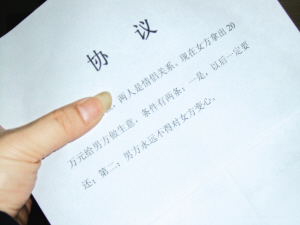 协 议
，两人是情侣关系。现在女方拿出20
万元给男方做生意，条件有两条：一是，以后一定要
还；第二：男方永远不得对女方变心。